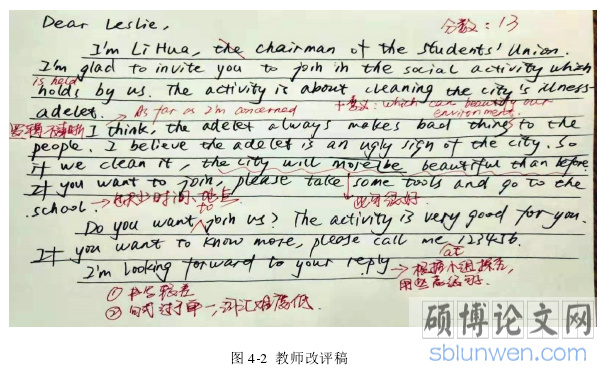 Dear Leslie,
分数：13
I'm Li Hua, the chairman of the students' Union.
I'm glad to invite you to join in the social activity which
is held
holds by us. The activity is about cleaning the city's illness-
adelet.
As far as I'm concerned
+意义：which can beautify our
environment.
I think, the adelet always makes bad things to the
people. I believe the adelet is an ugly sign of the city. So
if we clean it, the city will more be beautiful than before.
If you want to join, please take some tools and go to the
school.
缺少时间、地点
此句很好.
to
Do you want join us? The activity is very good for you.
If you want to know more, please call me 123456.
at
I'm looking forward to your reply
① 书写较差
② 句式过于单一，词汇难度低.
硕博论文网
sblunwen.com
图 4-2 教师改评稿